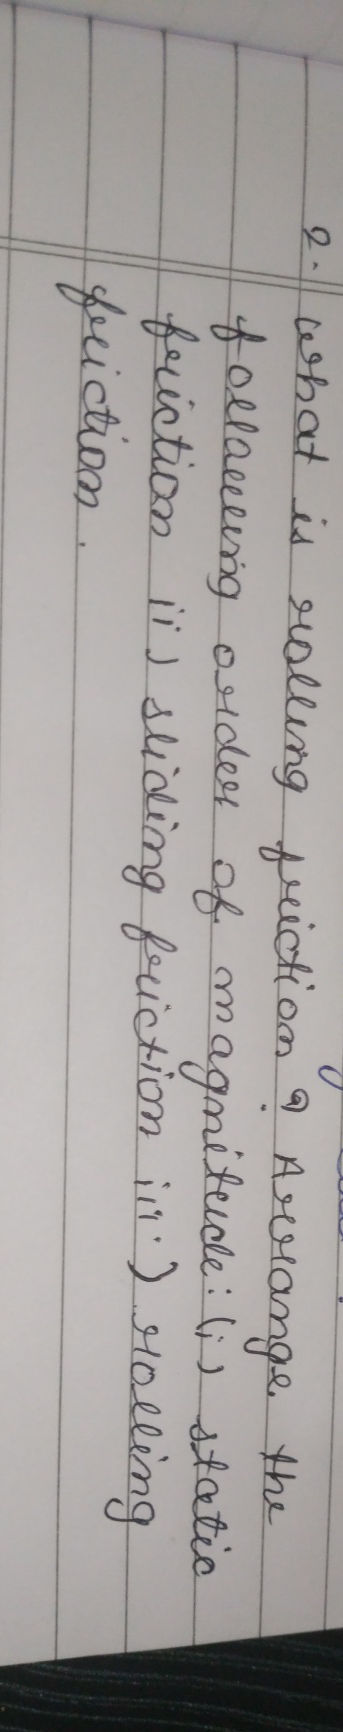 2. What is rolling friction? Arrange the
following order of magnitude: (i) static
friction ii) sliding friction iii) rolling
friction.